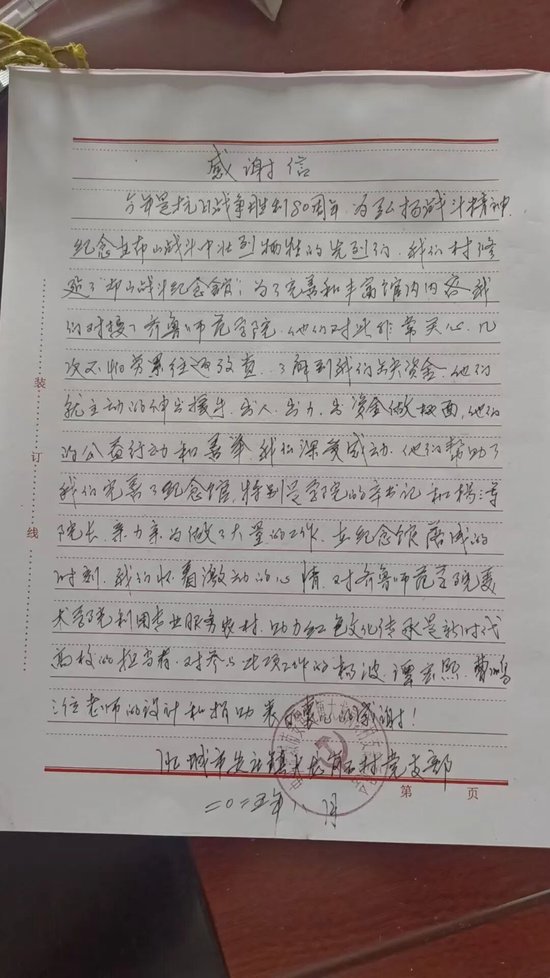 感谢信
今年是抗日战争胜利80周年,为弘扬战斗精神,
纪念在布山战斗中壮烈牺牲的先烈们,我们村修
建了布山战斗纪念馆;为了完善和丰富馆内内容我
们对接了齐鲁师范学院,他们对此非常关心,几
次不怕劳累往返改查,了解到我们缺资金,他们
就主动的伸出援手,出人,出力,出资金做板面,他们
的公益行动和善举我们深受感动,他们帮助了
我们完善了纪念馆,特别是学院的辛书记和杨涛
院长,亲力亲为做了大量的工作,在纪念馆落成的
时刻,我们怀着激动的心情,对齐鲁师范学院美
术学院利用专业服务农村,助力红色文化传承是新时代
高校的担当者,对参与此项工作的杨波,谭宏熙,曹鹏
三位老师的设计和捐助表的感谢!
肥城市安站镇村党支部
二〇二五年月
装
订
线
第 页